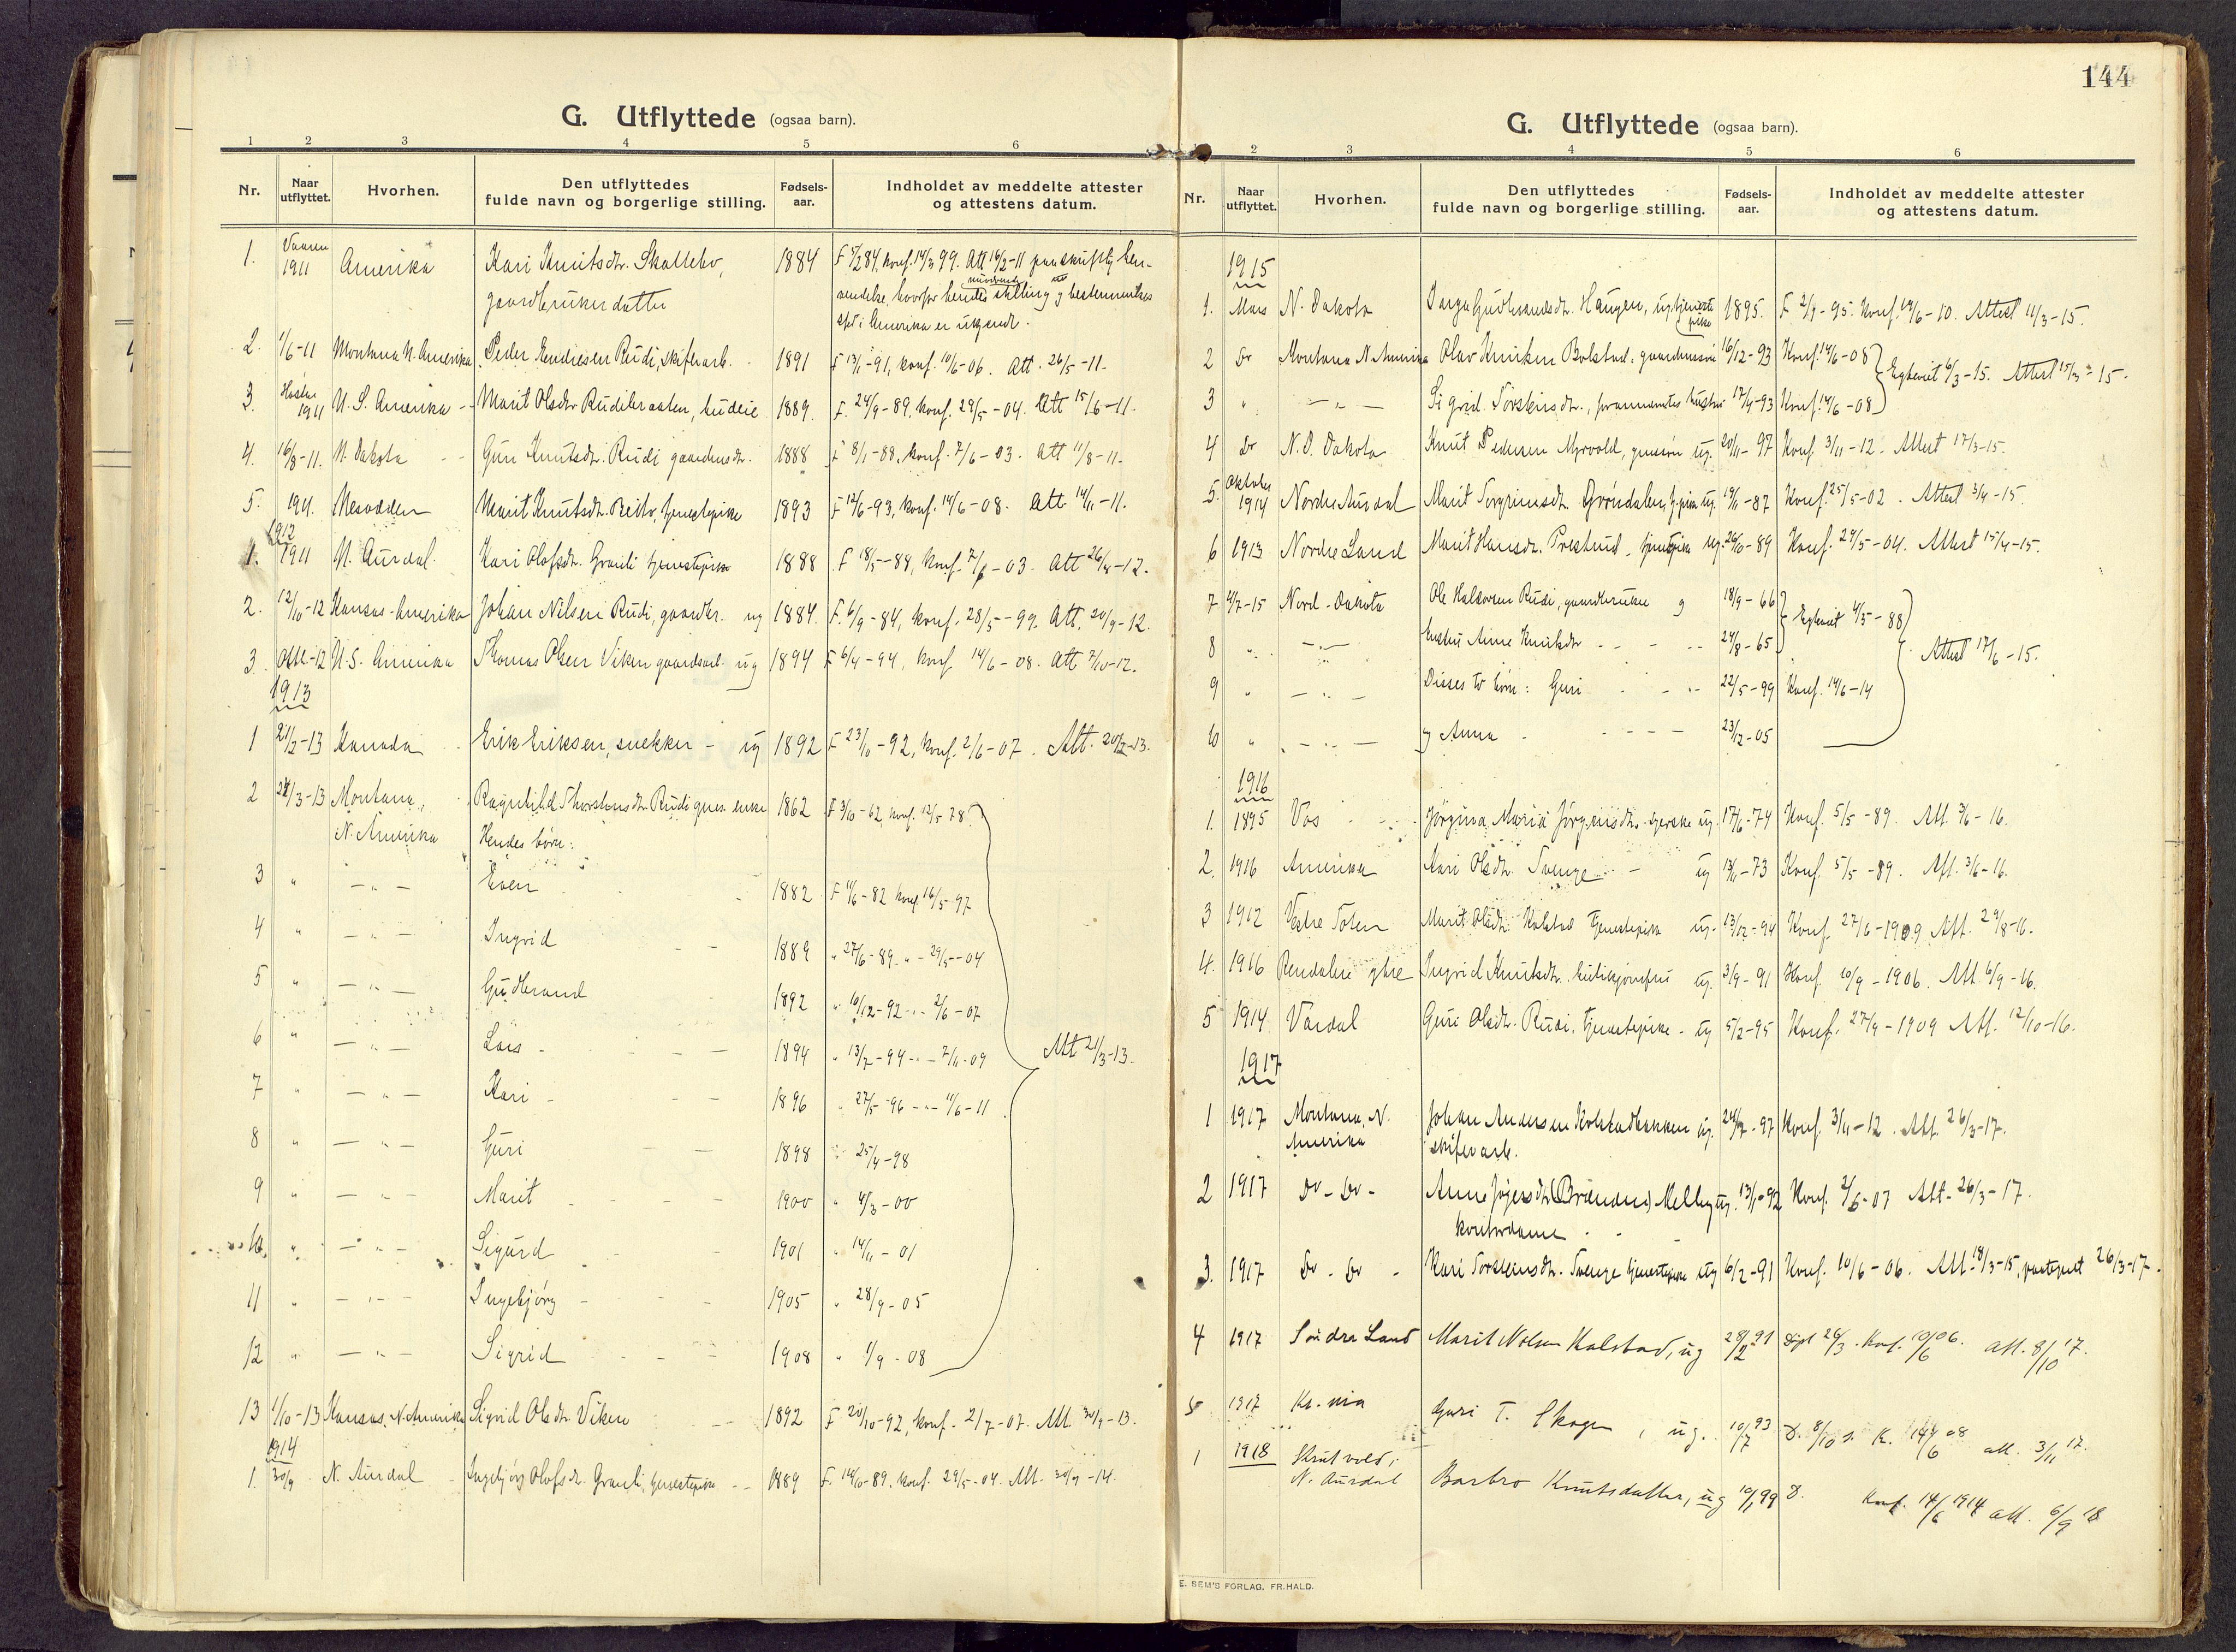 G. Utflyttede (ogsaa barn).
1 2 3 4 5 6
Nr. Naar utflyttet. Hvorhen. Den utflyttedes fulde navn og borgerlige stilling. Fødsels-aar. Indholdet av meddelte attester og attestens datum.
1. Vaaren 1911 Amerika Kari Knutsdtr. Skattebo, 1884 F 5/2 84, konf. 14/5 99. Att 16/2-11 paa skriftlig hen-
gaardbruker datter vendelse, hvorfor hendes nuværende stilling og bestemmelses
sted i Amerika er ukjendt.
2. 1/6-11 Montana N. Amerika Peder Endresen Rudi, skiferarb. 1891 F 13/1-91, konf. 10/6-06. Att. 26/5-11.
3. Høsten 1911 N. S. Amerika Marit Olsdtr Rudibraaten, budeie 1889. F. 24/9-89, konf. 29/5-04. Att 15/6-11.
4. 16/8-11. N. Dakota Guri Knutsdtr. Rudi gaardmsdtr. 1888 F 8/1-88, konf. 7/6-03. Att 11/8-11.
5. 1911. Nesodden Marit Knutsdtr. Reito, tjenestepike 1893 F 12/6-93, konf. 14/6-08. Att 14/11-11.
1912
1. 1911 N. Aurdal. Kari Olofsdtr. Granli tjenestepike 1888 F 18/5-88, konf. 7/6-03. Att 26/4-12.
2. 12/10-12 Kansas-Amerika Johan Nilsen Rudi, gaardbr. ug 1884. F. 6/9-84, konf. 28/5-99. Att. 20/9-12.
3. Okt.-12 N. S. Amerika Thomas Olsen Viken gaardsarb. ug 1894 F 6/4-94, konf 14/6-08. Att 7/10-12.
1913
1 21/2-13 Kanada Erik Eriksen, snekker - ug 1892 F 23/10-92, konf. 2/6-07. Att. 20/2-13.
2 28/3-13 Montana, Ragnhild Thorstensdtr. Rudi enke 1862 F 3/10-62, konf. 12/5 78
N. Amerika Hendes børn:
3 " - " - Even 1882 F 11/6-82 konf. 16/5-97
4 " - " - Ingrid 1889 " 27/6-89. " - 29/5-04
5 " - " - Gudbrand 1892 " 10/12-92 - " - 2/6-07
6 " - " - Lars - 1894 " 13/7-94 - " - 7/11-09 Att 21/3-13.
7 " - " - Kari - 1896 " 27/5-96 - " - 11/6-11
8 " - " - Guri 1898 " 25/4-98
9 " - " - Marit 1900 " 4/3-00
10. " - " - Sigurd 1901 " 14/11-01
11 " - " - Ingebjørg - 1905 " 28/9-05
12 " - " - Sigrid 1908 " 1/9-08
13 1/10-13 Kansas, N. Amerika Sigrid Olsdtr. Viken 1892 F 20/10-92, konf. 2/7-07. Att. 30/9-13.
1914
1. 30/9 N. Aurdal Ingebjørg Olofsdtr. Granli, tjenestepike 1889 F. 14/10-89. konf. 29/5-04. Att. 30/9-14.
144
G. Utflyttede (ogsaa barn).
2 3 4 5 6
Nr. Naar utflyttet. Hvorhen. Den utflyttedes fulde navn og borgerlige stilling. Fødsels-aar. Indholdet av meddelte attester og attestens datum.
1915
1. Mars N. Dakota Inga Gudbrandsdtr. Haugen, ug. tjenestepike 1895. F 2/9-95. Konf. 19/6-10. Attest 11/3-15.
2 Do Montana N. Amerika Olav Knutsen Bolstad, gaardmssøn 16/12-93 Konf. 14/6-08 Egteviet 6/3-15. Attest 15/3-15.
3 " - " - Sigrid Torsteinsdtr., forannævntes hustru 17/4-93 Konf. 14/6-08
4 Do N. D. Dakota Knut Pedersen Myrvold, ug. 20/11-97 Konf. 3/11-12. Attest 17/3-15.
5. Oktober 1914 Nordre Aurdal Marit Torgrimsdtr. Grøndalen, tj.pike ug. 19/11-87 Konf. 25/5-02. Attest 3/4-15.
6 1913 Nordre Land Marit Hansdtr. Prestrud, tjenestpike ug. 26/10-89 Konf. 29/5-04. Attest 15/4-15.
7 4/7-15 Nord-Dakota Ole Halvorsen Rudi, gaardbruker og 18/9-66 Egteviet 4/5-88
8 " - " - hustru Anne Knutsdtr 24/8-65 Attest 17/6-15.
9 " - " - Disses to børn: Guri 22/5-99 Konf. 14/6-14
10 " - " - og Anna 23/12-05
1916
1. 1895 Vos Jørgina Maria Jørgensdtr. syerske ug. 17/6-74 Konf. 5/5-89. Att. 3/6-16.
2. 1916 Amerika Kari Olsdtr. Svenge ug 13/11-73 Konf. 5/5-89. Att. 3/6-16.
3 1912 Vestre Toten Marit Olsdtr. Kolstad tjenestepike ug. 13/12-94 Konf. 27/6-1909. Att. 29/8-16.
4. 1916 Rendalen ytre Ingrid Knutsdtr. butikjomfru ug. 3/9-91 Konf 10/9-1906. Att 6/9-16.
5 1914 Vardal Guri Olsdtr. Rudi, tjenestepike - ug 5/2-95 Konf. 27/9-1909 Att. 12/10-16.
1917
1 1917 Montana, N. Johan Andersen Kolstadbakken ug. 24/7-97 Konf. 3/11-12. Att. 26/3-17.
Amerika skiferarb.
2 1917 Do - Do - Anne (Brænden) Melby ug. 13/10-92 Konf. 2/6-07 Att. 26/3-17.
kontordame
3. 1917 Do - Do - Kari Torsteinsdtr. Svenge tjenestepike ug 6/2-91 Konf. 10/6-06. Att. 18/3-15, paategnet 26/3-17.
4 1917 Søndre Land Marit Nilsen Kalstad, ug 28/2 91 Døpt 26/3. Konf. 10/6 06. Att. 8/10 17.
5 1917 Kr.nia Guri T. Skogen, ug. 10/7 93 D. 8/10 s. K. 14/6 08 att. 3/11 17.
1 1918 Skrutvold i
N. Aurdal Barbro Knutsdatter, ug 10/1 99 D. Konf. 14/6 1914 att. 6/9 18
E. SEM'S FORLAG, FR.HALD.